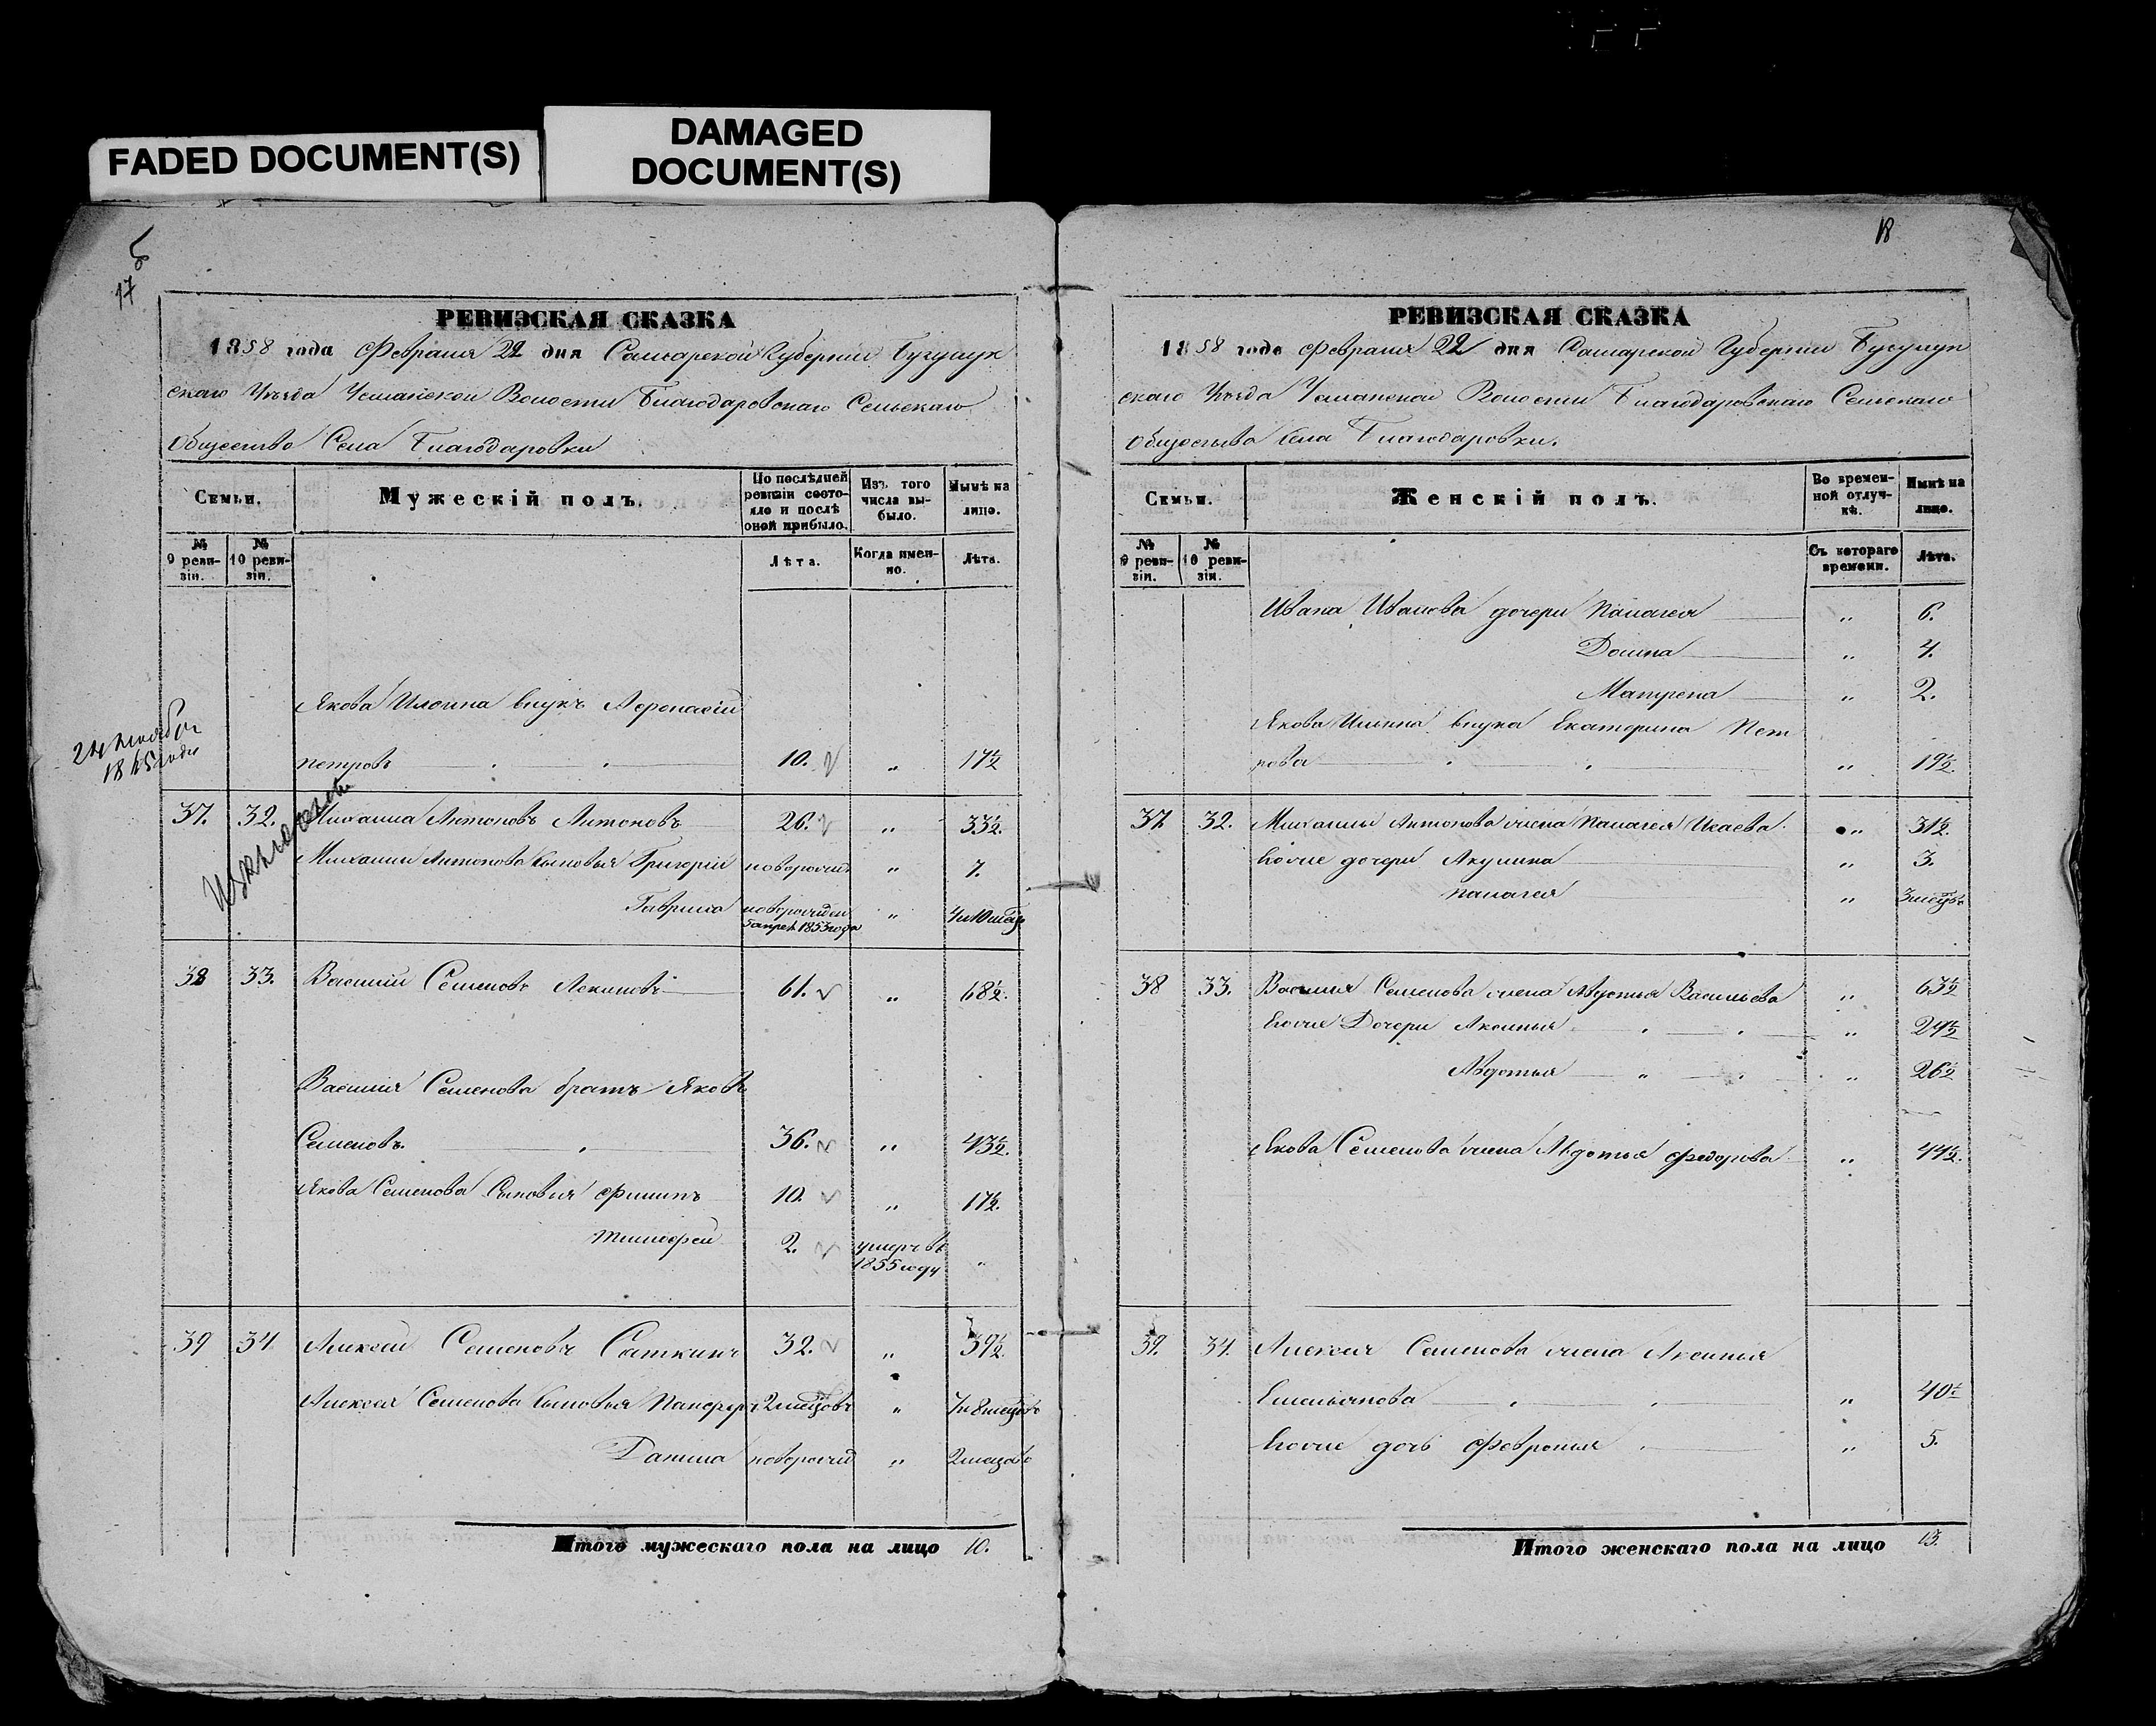 FADED DOCUMENT(S)
DAMAGED
DOCUMENT(S)
17
РЕВИЗСКАЯ СКАЗКА
1858 года Февраля 22 дня Самарской Губернии Бугурук
скаго Уѣзда Усманской Волости Благодаровскаго Сельскаго
Общества Села Благодаровки
Семьи.
Мужескій полъ.
По послѣдней
ревизіи состо-
яло и послѣ
оной прибыло.
Изъ того
числа вы-
было.
Нынѣ на
лицо.
№
9 реви-
зіи.
№
10 реви-
зіи.
Лѣта.
Когда имен-
но.
Лѣта.
Якова Ильина внукъ Афонасій
петровъ 10. „ 17½
24 ноября
1845 года
37. 32. Михаила Антоновъ Антоновъ 26. „ 33½.
Михаила Антонова сыновья Григорій новорожден „ 7.
Гаврила новорожден „ 4 и 10 мѣсяц
апрел 1853 года
38 33. Василій Семеновъ 61. „ 68½.
Василия Семенова братъ Яковъ
Семеновъ. 36. „ 43½.
Якова Семенова Сыновья Филипъ 10. „ 17½.
Тимофей 2. умеръ въ „
1855 году
39 34. Алексей Семеновъ Сяткинъ 32. „ 39½.
Алексея Семенова Сыновья 2 мѣсяцовъ „ 7 и 8 мѣсяцовъ
Данила новорожд „ 2 месяцовъ
Итого мужескаго пола на лицо 10.
18
РЕВИЗСКАЯ СКАЗКА
1858 года Февраля 22 дня Самарской Губернии Бугурук
скаго Уѣзда Усманской Волости Благодаровскаго Сельскаго
Общества Села Благодаровки.
Семьи.
Женскій полъ.
Во времен-
ной отлуч-
кѣ.
Нынѣ на
лицо.
№
9 реви-
зіи.
№
10 реви-
зіи.
Съ котораго
времени.
Лѣта.
Ивана Иванова дочери Палагея „ 6.
Домна „ 4.
„ 2.
Якова Ильина внука Екатерина Пет
рова „ 19½.
37 32. Михаилы Антонова жена Палагея Исаева. „ 31½.
Ихже дочери Акулина „ 3.
Палагея „ 3 месяцовъ
38 33. Василия Семенова жена Авдотья Васильева „ 63½
Ихже Дочери Аксинья „ 29½
Авдотья „ 26½
Якова Семенова жена Авдотья Федорова „ 44½.
39. 34. Алексея Семенова жена Аксинья
Емельянова „ 40½
Ихже дочь Февронья „ 5.
Итого женскаго пола на лицо 13.